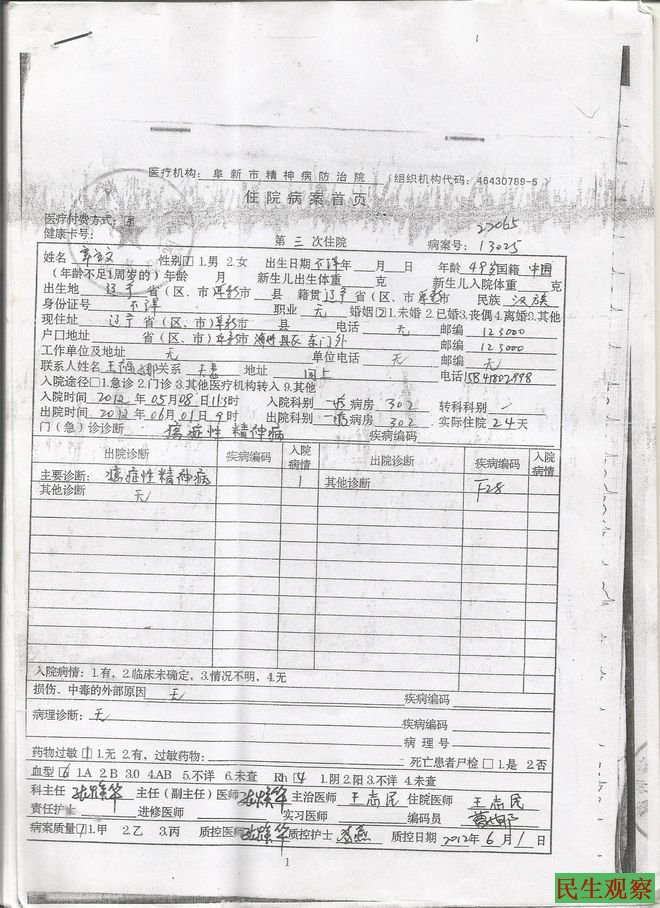 医疗机构: 阜新市精神病防治院 (组织机构代码: 46430789-5)
住院病案首页
医疗付费方式:
健康卡号:
第 三 次住院 病案号: 13025
姓名 性别 1.男 2.女 出生日期 不详 年 月 日 年龄 49岁 国籍 中国
(年龄不足1周岁的) 年龄 月 新生儿出生体重 克 新生儿入院体重 克
出生地 辽宁 省(区、市) 阜新市 县 籍贯 辽宁 省(区、市) 阜新市 民族 汉族
身份证号 不详 职业 无 婚姻 2 1.未婚 2.已婚 3.丧偶 4.离婚 9.其他
现住址 辽宁 省(区、市) 阜新市 县 电话 无 邮编 123000
户口地址 省(区、市) 阜新市 东门外 邮编 123000
工作单位及地址 无 单位电话 无 邮编 无
联系人姓名 关系 夫妻 地址 同上 电话 15841802998
入院途径 1.急诊 2.门诊 3.其他医疗机构转入 9.其他
入院时间 2012年05月08日 时 入院科别 病房 302 转科科别
出院时间 2012年06月01日9时 出院科别 病房 302 实际住院 24 天
门(急)诊诊断 癔症性精神病 疾病编码
出院诊断 疾病编码 入院病情 出院诊断 疾病编码 入院病情
主要诊断: 癔症性精神病 1 其他诊断 F28
其他诊断 无
入院病情: 1.有, 2.临床未确定, 3.情况不明, 4.无
损伤、中毒的外部原因 无 疾病编码
病理诊断: 无 疾病编码
病 理 号
药物过敏 1 1.无 2.有, 过敏药物: 死亡患者尸检 1.是 2.否
血型 6 1.A 2.B 3.O 4.AB 5.不详 6.未查 Rh 4 1.阴 2.阳 3.不详 4.未查
科主任 主任(副主任)医师 主治医师 王志民 住院医师 王志民
责任护士 进修医师 实习医师 编码员
病案质量 1.甲 2.乙 3.丙 质控医师 质控护士 质控日期 2012年6月1日
1
民生观察